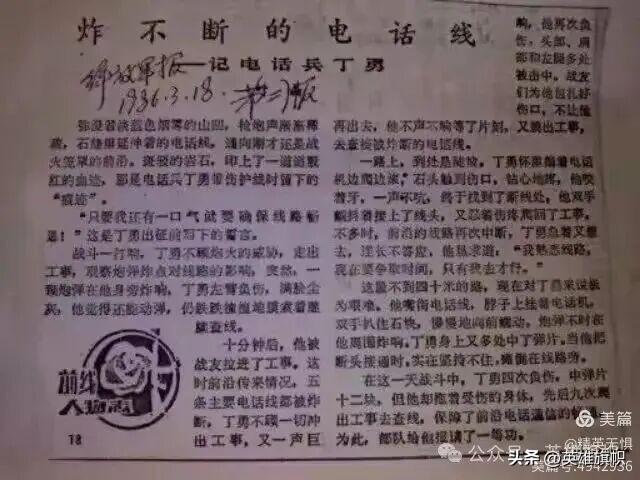 炸不断的电话线
—记电话兵丁勇
解放军报
1986.3.18. 第二版
弥漫着淡蓝色烟雾的山峦，枪炮声渐渐稀
疏，石缝里延伸着的电话线，通向刚才还是战
火笼罩的前沿。斑驳的岩石，印上了一道道殷
红的血迹，那是电话兵丁勇带伤护线时留下的
“痕迹”。
“只要我还有一口气就要确保线路畅
通！”这是丁勇出征前写下的誓言。
战斗一打响，丁勇不顾炮火的威胁，走出
工事，观察炮弹炸点对线路的影响，突然，一
颗炮弹在他身旁炸响，丁勇左臂负伤，满脸尘
灰，他觉得还能动弹，仍跌跌撞撞地摸索着继
续查线。
十分钟后，他被
战友拉进了工事。这
时前沿传来情况，五
条主要电话线都被炸
断，丁勇不顾一切冲
出工事，又一声巨
前线
人物志
18
响，他再次负
伤，头部、肩
部和左腿多处
被击中。战友
们为他包扎好
伤口，不让他
再出去，他不声不响等了片刻，又跳出工事，
去查接被炸断的电话线。
一路上，到处是陡坡，丁勇怀抱着电话
机边爬边滚，石头触到伤口，钻心地疼，他咬
着牙，一声不吭，终于找到了断线处，他双手
颤抖着接上了线头，又忍着伤疼爬回了工事。
不多时，前沿的线路再次中断，丁勇急着又要
去，连长不答应，他恳求道：“我熟悉线路，
现在要争取时间，只有我去才行。”
这最不到四十米的路，现在对丁勇来说极
为艰难。他嘴衔电话线，脖子上挂着电话机，
双手扒住石块，慢慢地向前蠕动，炮弹不时在
他周围炸响，丁勇身上又多处中了弹片，当他把
断头接通时，实在坚持不住，瘫倒在线路旁。
在这一天战斗中，丁勇四次负伤，中弹片
十二块，但他却拖着受伤的身体，先后九次爬
出工事去查线，保障了前沿电话通信的畅通
为此，部队给他报请了一等功。
美篇
@精英无惧
公众号
头条 @英雄旗帜
美篇号:4942936